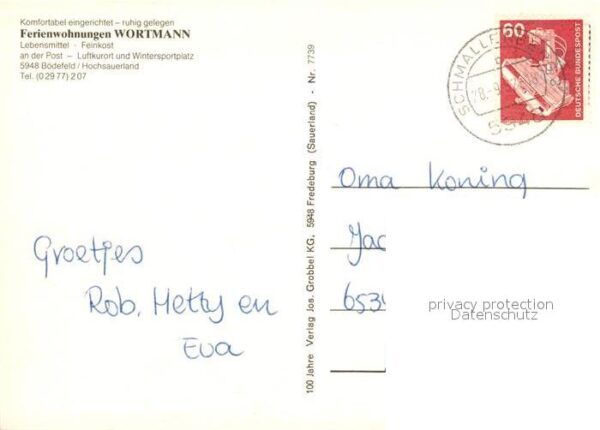 Komfortabel eingerichtet – ruhig gelegen
Ferienwohnungen WORTMANN
Lebensmittel · Feinkost
an der Post – Luftkurort und Wintersportplatz
5948 Bödefeld / Hochsauerland
Tel. (0 29 77) 2 07
100 Jahre Verlag Jos. Grobbel KG, 5948 Fredeburg (Sauerland) · Nr. 7739
60
DEUTSCHE BUNDESPOST
Oma Koning
Jac
6534
Groetjes
Rob, Hetty en
Eva
privacy protection
Datenschutz